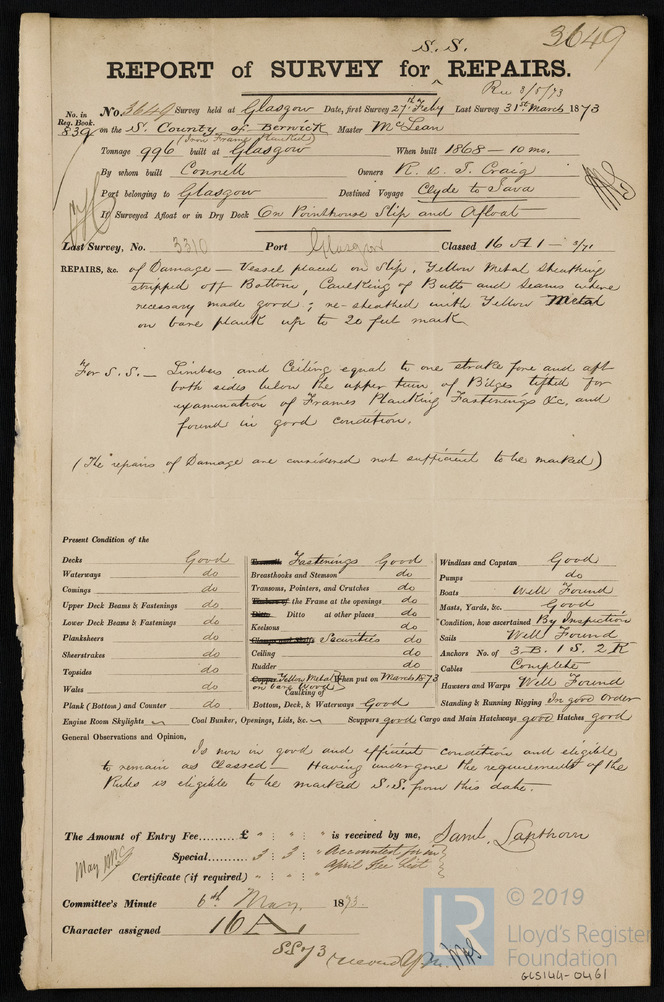 3649
S. S.
REPORT of SURVEY for REPAIRS.
Rec 3/5/73
No. in Reg. Book. No. 3649 Survey held at Glasgow Date, first Survey 27th Feby Last Survey 31st March 1873
839 on the S. County of Berwick Master McLean
(Iron Frame Planked)
Tonnage 996 built at Glasgow When built 1868 - 10 mo.
By whom built Connell Owners R. & J. Craig
Port belonging to Glasgow Destined Voyage Clyde to Java
If Surveyed Afloat or in Dry Dock On Pointhouse Slip and Afloat
Last Survey, No. 3310 Port Glasgow Classed 16 A 1 - 2/71
REPAIRS, &c. of Damage - Vessel placed on Slip, Yellow Metal Sheathing
stripped off Bottom, Caulking of Butts and Seams where
necessary made good; re-sheathed with Yellow Metal
on bare plank up to 20 feet mark
For S. S. - Limbers and Ceiling equal to one strake fore and aft
both sides below the upper turn of Bilges lifted for
examination of Frames Planking Fastenings &c, and
found in good condition.
(The repairs of Damage are considered not sufficient to be marked)
Present Condition of the
Decks Good
Waterways do
Comings do
Upper Deck Beams & Fastenings do
Lower Deck Beams & Fastenings do
Planksheers do
Sheerstrakes do
Topsides do
Wales do
Plank (Bottom) and Counter do
Treenails Fastenings Good
Breasthooks and Stemson do
Transoms, Pointers, and Crutches do
Timbers of the Frame at the openings do
Ditto Ditto at other places do
Keelsons do
Securities do
Ceiling do
Rudder do
Copper Yellow Metal When put on March 1873
on bare Wood
Caulking of
Bottom, Deck, & Waterways Good
Windlass and Capstan Good
Pumps do
Boats Well Found
Masts, Yards, &c. Good
Condition, how ascertained By Inspection
Sails Well Found
Anchors No. of 3 B. 1 S. 2 K
Cables Complete
Hawsers and Warps Well Found
Standing & Running Rigging In good order
Engine Room Skylights Coal Bunker, Openings, Lids, &c. Scuppers good Cargo and Main Hatchways good Hatches good
General Observations and Opinion,
Is now in good and efficient condition and eligible
to remain as Classed - Having undergone the requirements of the
Rules is eligible to be marked S.S. from this date.
The Amount of Entry Fee......... £ " : " : " is received by me, Saml. Lapthorn
Special......... 3 : 3 : " Accounted for in
April Fee List
Certificate (if required) " : " : "
Committee's Minute 6th May 1873.
Character assigned 16 A
SS 73
© 2019
LR
Lloyd's Register
Foundation
GLS144-0461